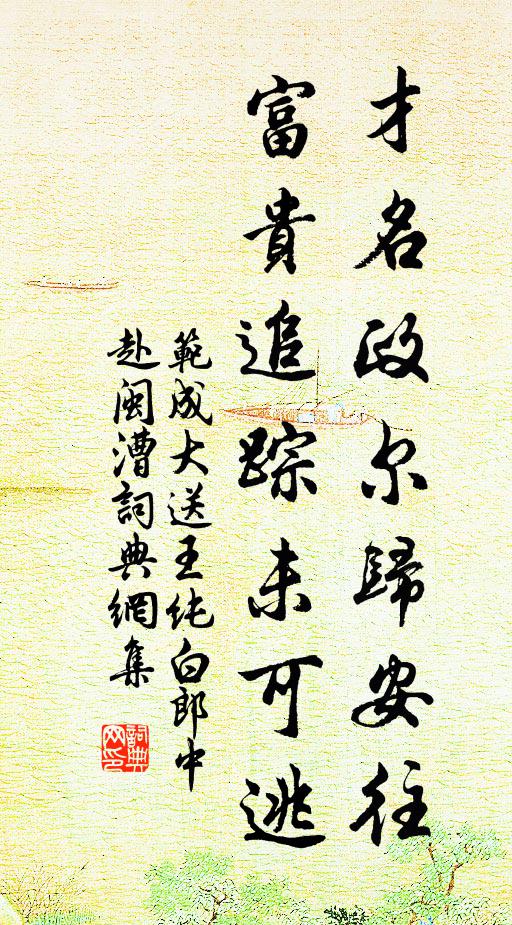 才名政尔歸安往
富貴追踪未可逃
範成大送王純白郎中
赴閩漕詞典網集
詞典网印